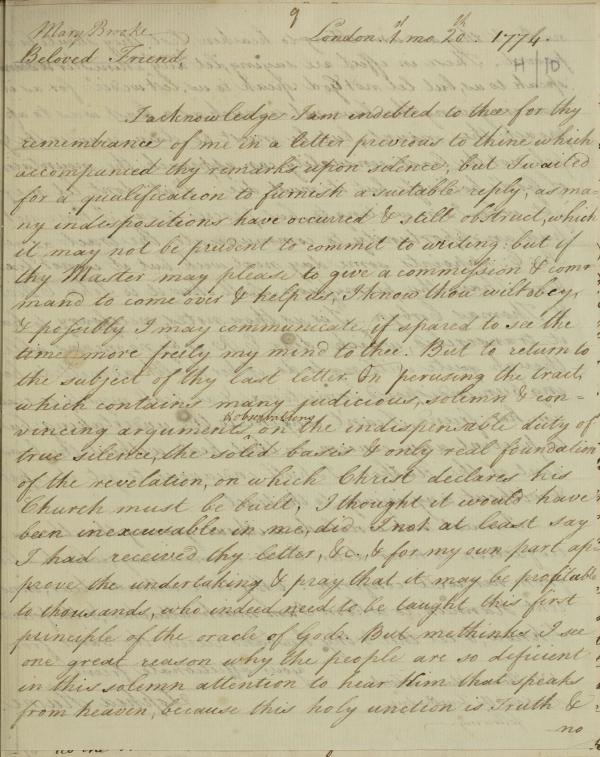 9
Mary Brooke London. 1st mo. 20th. 1774.
H/10
Beloved Friend
I acknowledge I am indebted to thee for thy
remembrance of me in a letter previous to thine which
accompanied thy remarks upon silence, but I waited
for a qualification to furnish a suitable reply; as ma-
ny indispositions have occurred & still obstruct, which
it may not be prudent to commit to writing: but if
thy Master may please to give a commission & com-
mand to come over & help us, I know thou wilt obey,
& possibly I may communicate, if spared to see the
time, more freely my mind to thee. But to return to
the subject of thy last letter. On perusing the tract,
which contains many judicious, solemn & con-
& observations
vincing arguments on the indispensable duty of
true silence, the solid basis & only real foundation
of the revelation, on which Christ declares his
Church must be built, I thought it would have
been inexcusable in me, did I not at least say
I had received thy letter, &c. & for my own part ap-
prove the undertaking & pray that it may be profitable
to thousands, who indeed need to be taught this first
principle of the oracle of God. But methinks I see
one great reason why the people are so dificient
in this solemn attention to hear Him that speaks
from heaven, because this holy unction is Truth &
no